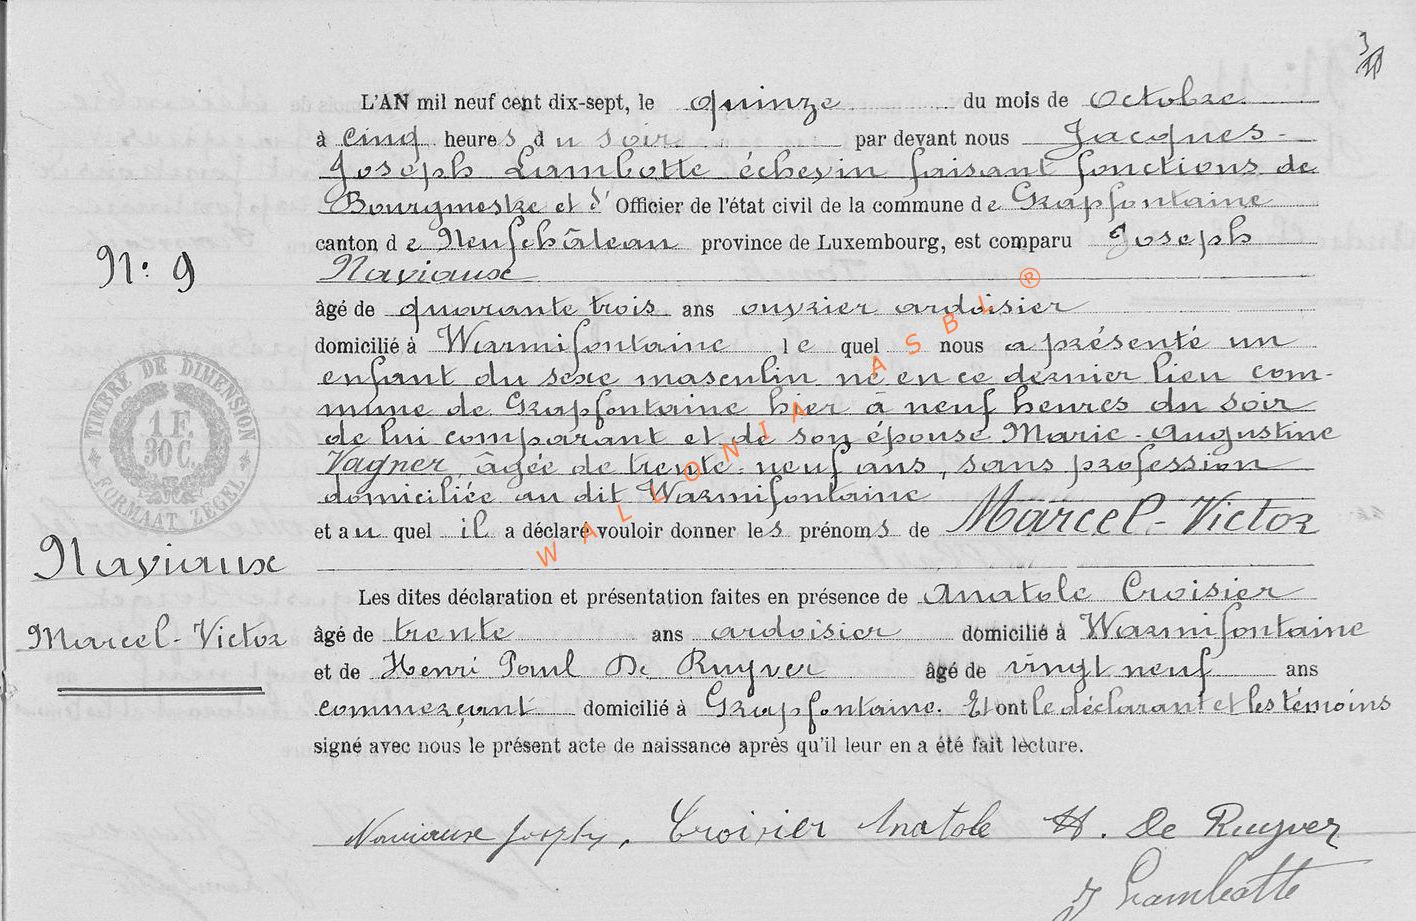 L'AN mil neuf cent dix-sept, le quinze du mois de Octobre
à cinq heures du soir par devant nous Jacques-
Joseph Lambotte échevin faisant fonctions de
Bourgmestre et d'Officier de l'état civil de la commune de Grapfontaine
canton de Neufchâteau province de Luxembourg, est comparu Joseph
N° 9
Naviaux
âgé de quarante trois ans ouvrier ardoisier
domicilié à Warmifontaine le quel nous a présenté un
enfant du sexe masculin né en ce dernier lieu com-
mune de Grapfontaine hier à neuf heures du soir
de lui comparant et de son épouse Marie-Augustine
Vagner, âgée de trente-neuf ans, sans profession
domiciliée au dit Warmifontaine
et au quel il a déclaré vouloir donner les prénoms de Marcel-Victor
TIMBRE DE DIMENSION
1 F.
30 C.
FORMAAT ZEGEL
WALLONIA ASBL ®
Naviaux
Marcel-Victor
Les dites déclaration et présentation faites en présence de Anatole Croisier
âgé de trente ans ardoisier domicilié à Warmifontaine
et de Henri Paul De Ruyver âgé de vingt neuf ans
commerçant domicilié à Grapfontaine. Et ont le déclarant et les témoins
signé avec nous le présent acte de naissance après qu'il leur en a été fait lecture.
Naviaux Joseph, Croisier Anatole H. De Ruyver
J Lambotte